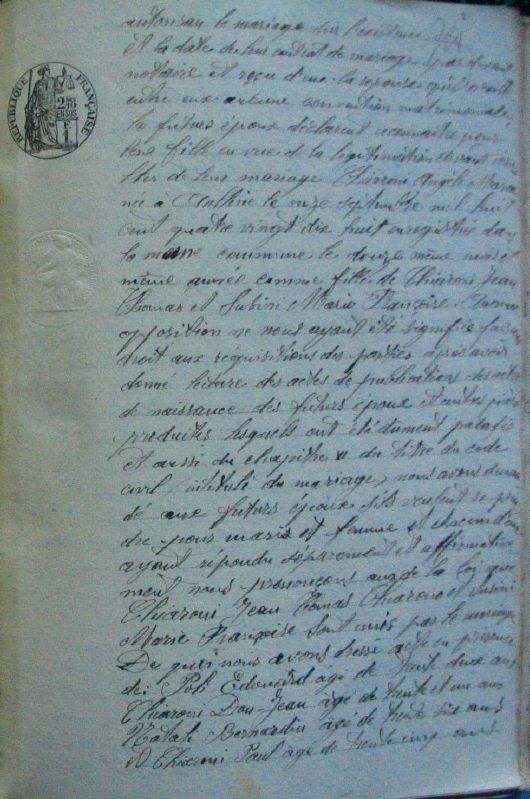 RÉPUBLIQUE FRANÇAISE
autorisan le mariage sur l'existence
et la date de leur contrat de mariage par devant
notaire et reçu d'eux la réponse qu'
entre eux aucune convention matrimoniale
les futurs époux déclarent reconnaitre pour
leur fille en vue de la légitimation devant
ter de leur mariage Chiaroni Angele
née à le onze septembre mil huit
cent quatre vingt dix huit enregistrée dans
la même commune le douze même mois et
même année comme fille de Chiaroni Jean
Thomas et Susini Marie Françoise Aucune
opposition ne nous ayant été signifiée faisant
droit aux réquisitions des parties après avoir
donné lecture des actes de publications des actes
de naissance des futurs époux et autres pièces
produites lesquels ont été dûment parafés
et aussi du chapitre VI du titre du code
civil intitulé du mariage, nous avons deman
dé aux futurs époux s'ils veulent se pren
dre pour mari et femme et chacun d'eux
ayant répondu séparément et affirmative
ment nous prononçons au de la loi que
Chiaroni Jean Thomas Chiaroni et Susini
Marie Françoise sont unis par le mariage
De quoi nous avons dressé acte en présence
de: Poli Edouard âgé de trente deux ans
Chiaroni Don-Jean âgé de trente et un ans
Natali Bernardin âgé de trente six ans
et Chiaroni Paul âgé de trente cinq ans